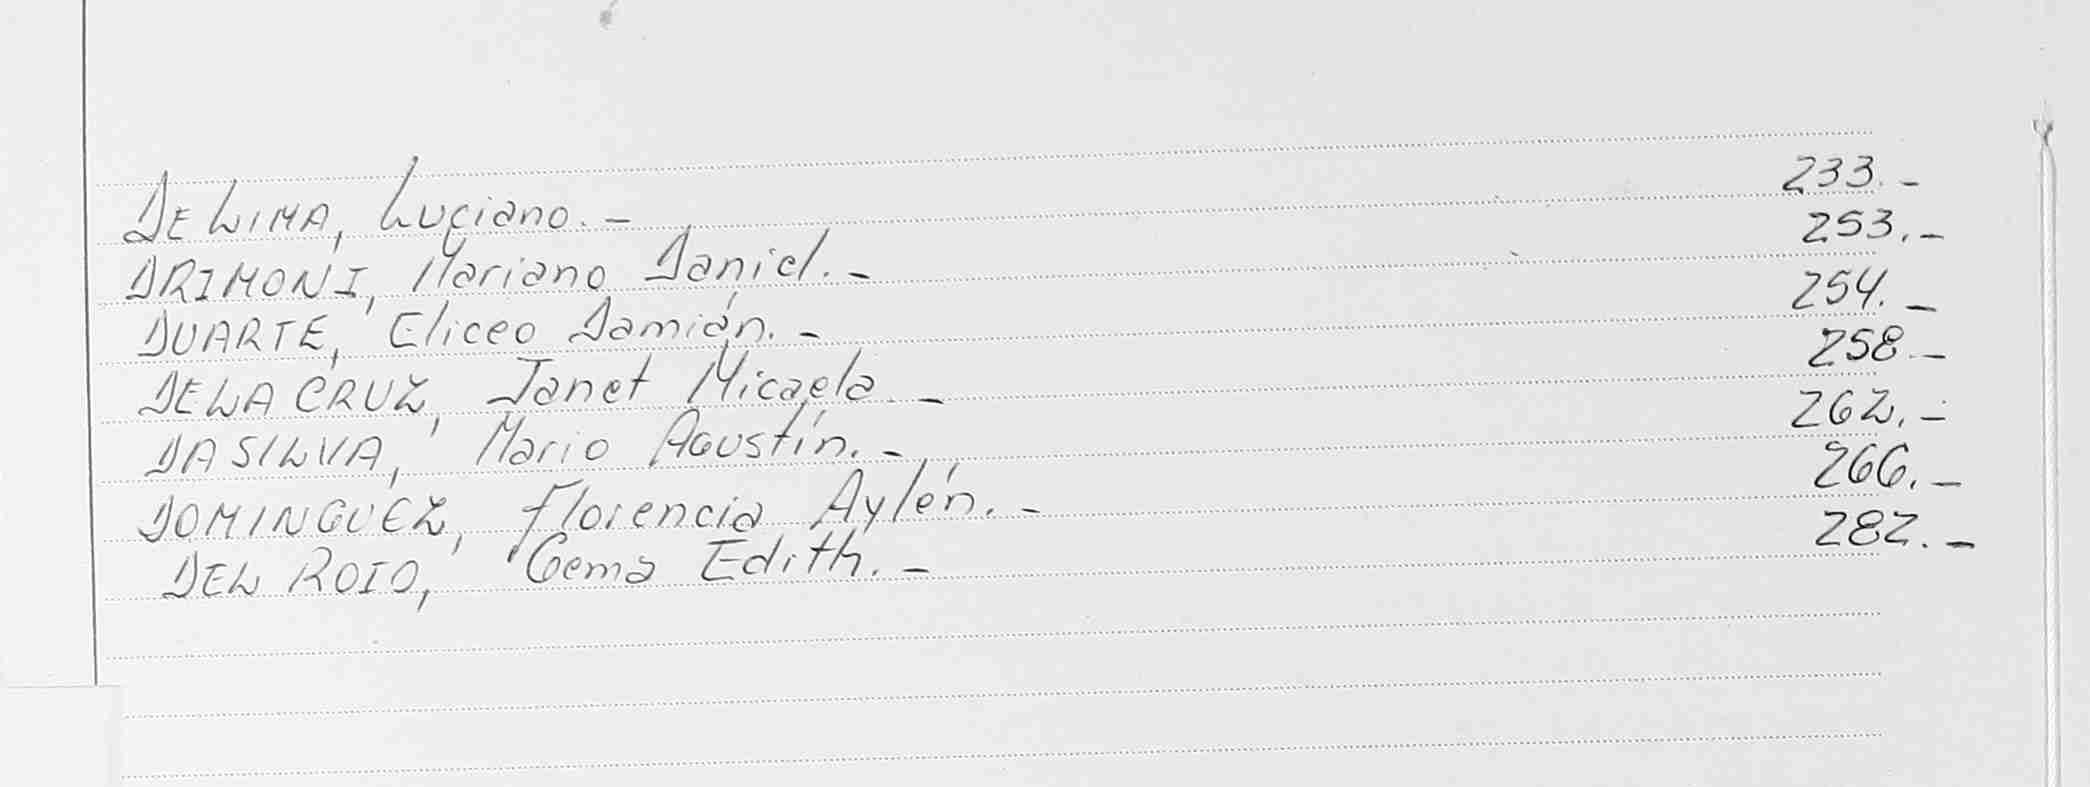 DE LIMA, Luciano.- 233.-
DRIMONI, Mariano Daniel.- 253.-
DUARTE, Eliceo Damián.- 254.-
DE LA CRUZ, Janet Micaela.- 258.-
DA SILVA, Mario Agustín.- 262.-
DOMINGUEZ, Florencia Aylén.- 266.-
DEL ROIO, Gema Edith.- 282.-